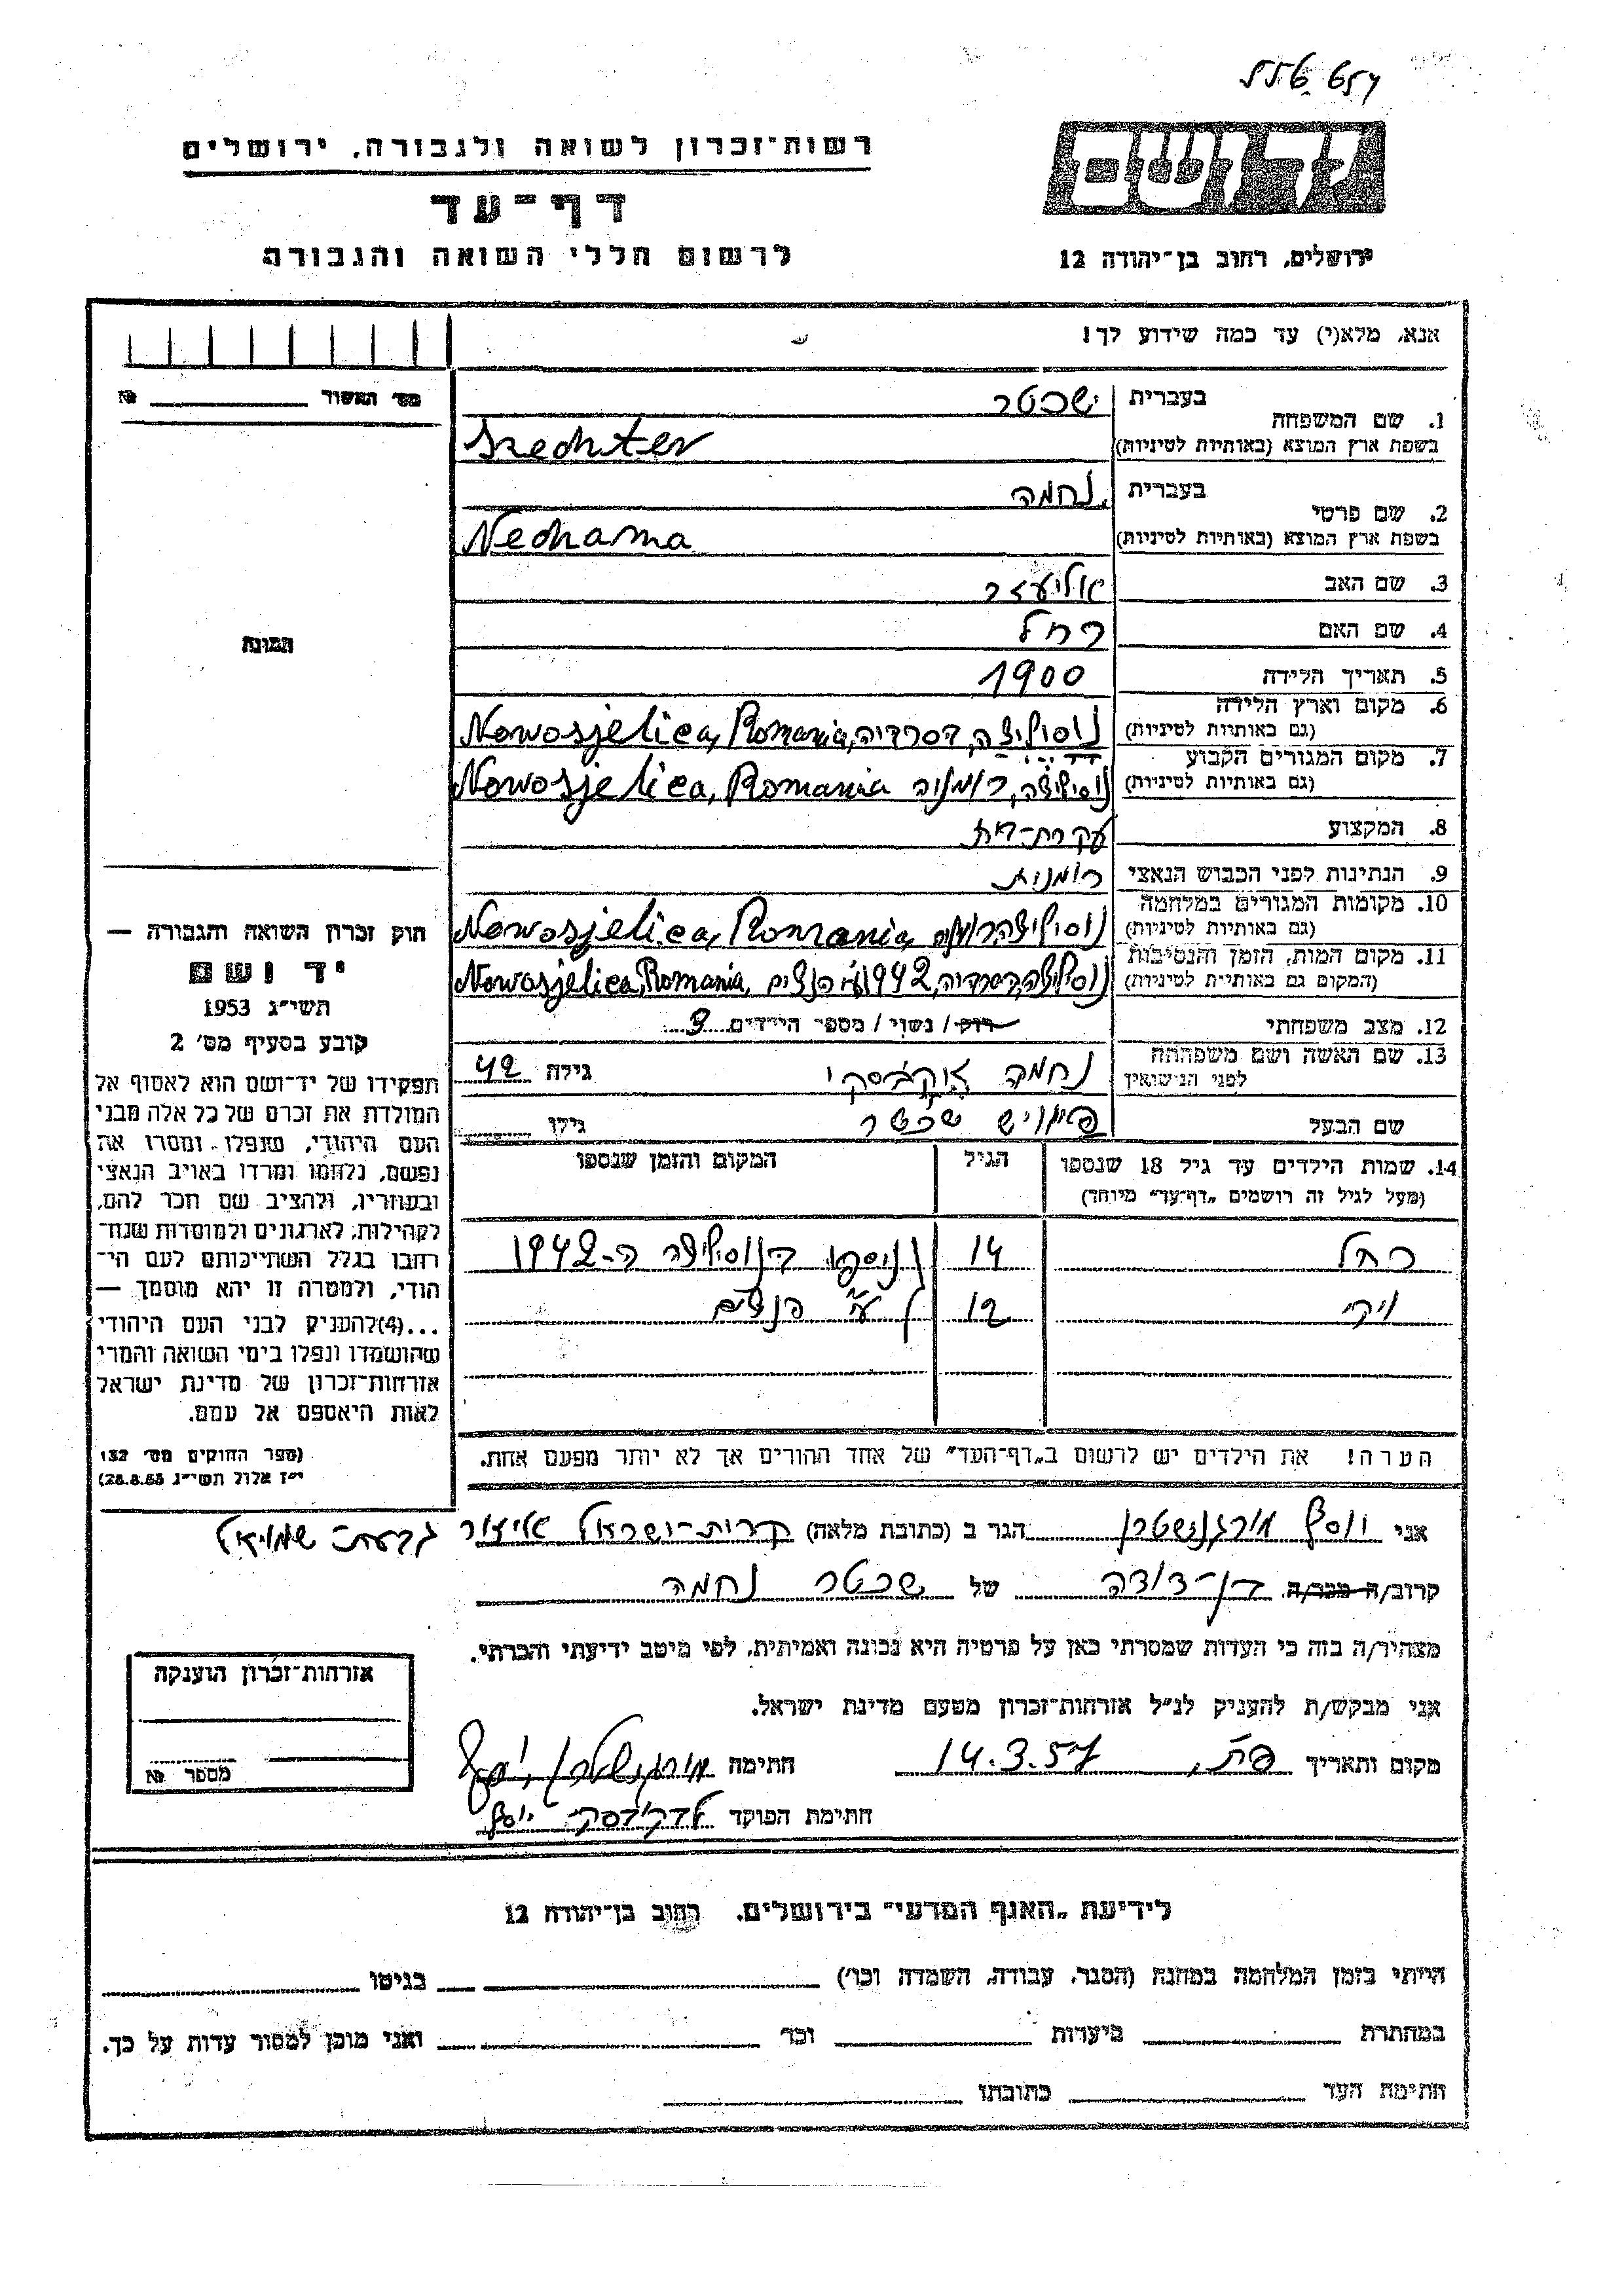 רשות־זכרון לשואה ולגבורה. ירושלים
דף־עד
לרשום חללי השואה והגבורה
יד ושם
ירושלים, רחוב בן־יהודה 12
אנא, מלא(י) עד כמה שידוע לך!
מס׳ האשור №
1. שם המשפחה
בעברית שכטר
בשפת ארץ המוצא (באותיות לטיניות) Szechter
2. שם פרטי
בעברית נחמה
בשפת ארץ המוצא (באותיות לטיניות) Nechama
3. שם האב אליעזר
4. שם האם רחל
5. תאריך הלידה 1900
6. מקום וארץ הלידה
(גם באותיות לטיניות) Nowosjelica, Romania
7. מקום המגורים הקבוע
(גם באותיות לטיניות) נוסליצה, רומניה Nowosjelica, Romania
8. המקצוע עקרת-בית
9. הנתינות לפני הכבוש הנאצי רומנית
10. מקומות המגורים במלחמה
(גם באותיות לטיניות) Nowosjelica, Romania
11. מקום המות, הזמן והנסיבות
(המקום גם באותיות לטיניות) 1942 Nowosjelica, Romania,
12. מצב משפחתי רוק/ נשוי/ מספר הילדים 3
13. שם האשה ושם משפחתה
לפני הנישואין נחמה
גילה 42
שם הבעל שכטר
גילו
14. שמות הילדים עד גיל 18 שנספו
(מעל לגיל זה רושמים „דף־עד״ מיוחד)
הגיל
המקום והזמן שנספו
רחל 14 ניספו בנוסליצה ב-1942
12 ע״י הנאצים
הערה! את הילדים יש לרשום ב„דף־העד״ של אחד ההורים אך לא יותר מפעם אחת.
התמונה
חוק זכרון השואה והגבורה —
יד ושם
תשי״ג 1953
קובע בסעיף מס׳ 2
תפקידו של יד־ושם הוא לאסוף אל
המולדת את זכרם של כל אלה מבני
העם היהודי, שנפלו ומסרו את
נפשם, נלחמו ומרדו באויב הנאצי
ובעוזריו, ולהציב שם וזכר להם,
לקהילות, לארגונים ולמוסדות שנח־
רבו בגלל השתייכותם לעם הי־
הודי, ולמטרה זו יהא מוסמך —
...(4)להעניק לבני העם היהודי
שהושמדו ונפלו בימי השואה והמרי
אזרחות־זכרון של מדינת ישראל
לאות היאספם אל עמם.
(ספר החוקים מס׳ 132
י״ז אלול תשי״ג 28.8.53)
אני יוסף מורגנשטרן הגר ב (כתובת מלאה)
קרוב/ה מכר/ה בן-דודה של שכטר נחמה
מצהיר/ה בזה כי העדות שמסרתי כאן על פרטיה היא נכונה ואמיתית, לפי מיטב ידיעתי והכרתי.
אני מבקש/ת להעניק לנ״ל אזרחות־זכרון מטעם מדינת ישראל.
מקום ותאריך 14.3.57 חתימה
חתימת הפוקד
אזרחות־זכרון הוענקה
מספר №
לידיעת „האגף המדעי״ בירושלים. רחוב בן־יהודה 12
הייתי בזמן המלחמה במחנה (הסגר, עבודה, השמדה וכו׳) בגיטו
במחתרת ביערות וכו׳ ואני מוכן למסור עדות על כך.
חתימת העד כתובתו